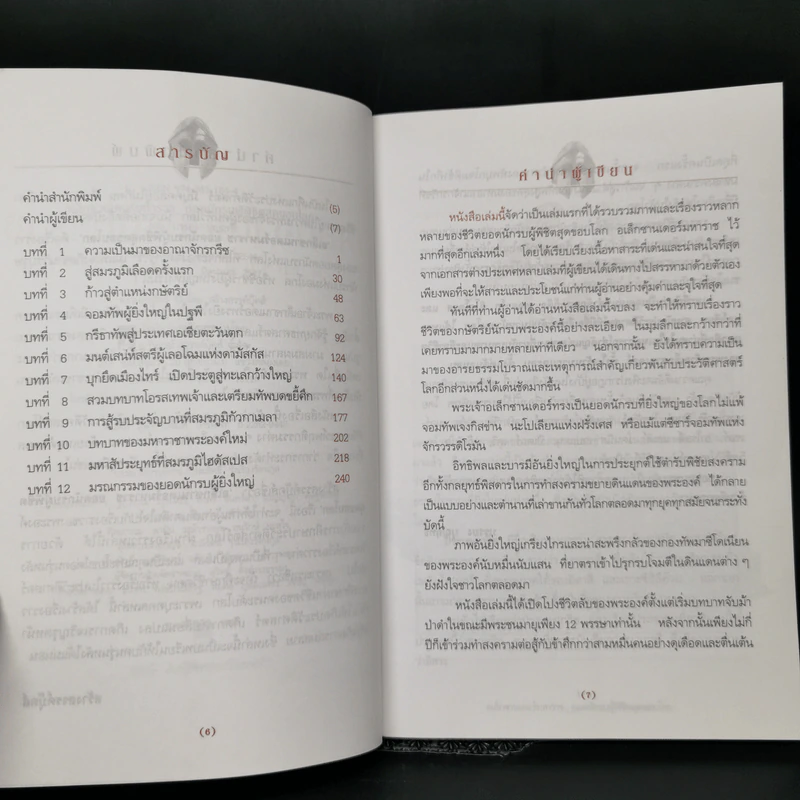 สารบัญ
คำนำสำนักพิมพ์ (5)
คำนำผู้เขียน (7)
บทที่ 1 ความเป็นมาของอาณาจักรกรีซ 1
บทที่ 2 สู่สมรภูมิเลือดครั้งแรก 30
บทที่ 3 ก้าวสู่ตำแหน่งกษัตริย์ 48
บทที่ 4 จอมทัพผู้ยิ่งใหญ่ในปฐพี 63
บทที่ 5 กรีธาทัพสู่ประเทศเอเชียตะวันตก 92
บทที่ 6 มนต์เสน่ห์สตรีผู้เลอโฉมแห่งดามัสกัส 124
บทที่ 7 บุกยึดเมืองไทร์ เปิดประตูสู่ทะเลกว้างใหญ่ 140
บทที่ 8 สวมบทบาทโอรสเทพเจ้าและเตรียมทัพบดขยี้ศึก 167
บทที่ 9 การสู้รบประจัญบานที่สมรภูมิกัวกาเมลา 177
บทที่ 10 บทบาทของมหาราชาพระองค์ใหม่ 202
บทที่ 11 มหาสัประยุทธ์ที่สมรภูมิไฮดัสเปส 218
บทที่ 12 มรณกรรมของยอดนักรบผู้ยิ่งใหญ่ 240
(6)
คำนำผู้เขียน
หนังสือเล่มนี้จัดว่าเป็นเล่มแรกที่ได้รวบรวมภาพและเรื่องราวหลาก
หลายของชีวิตยอดนักรบผู้พิชิตสุดขอบโลก อเล็กซานเดอร์มหาราช ไว้
มากที่สุดอีกเล่มหนึ่ง โดยได้เรียบเรียงเนื้อหาสาระที่เด่นและน่าสนใจที่สุด
จากเอกสารต่างประเทศหลายเล่มที่ผู้เขียนได้เดินทางไปสรรหามาด้วยตัวเอง
เพียงพอที่จะให้สาระและประโยชน์แก่ท่านผู้อ่านอย่างคุ้มค่าและจุใจที่สุด
ทันทีที่ท่านผู้อ่านได้อ่านหนังสือเล่มนี้จบลง จะทำให้ทราบเรื่องราว
ชีวิตของกษัตริย์นักรบพระองค์นี้อย่างละเอียด ในมุมลึกและกว้างกว่าที่
เคยทราบมามากมายหลายเท่าทีเดียว นอกจากนั้น ยังได้ทราบความเป็น
มาของอารยธรรมโบราณและเหตุการณ์สำคัญเกี่ยวพันกับประวัติศาสตร์
โลกอีกส่วนหนึ่งได้เด่นชัดมากขึ้น
พระเจ้าอเล็กซานเดอร์ทรงเป็นยอดนักรบที่ยิ่งใหญ่ของโลกไม่แพ้
จอมทัพเจงกิสข่าน นะโปเลียนแห่งฝรั่งเศส หรือแม้แต่ซีซาร์จอมทัพแห่ง
จักรวรรดิโรมัน
อิทธิพลและบารมีอันยิ่งใหญ่ในการประยุกต์ใช้ตำรับพิชัยสงคราม
อีกทั้งกลยุทธ์พิสดารในการทำสงครามขยายดินแดนของพระองค์ ได้กลาย
เป็นแบบอย่างและตำนานที่เล่าขานกันทั่วโลกตลอดมาทุกยุคทุกสมัยจนกระทั่ง
บัดนี้
ภาพอันยิ่งใหญ่เกรียงไกรและน่าสะพรึงกลัวของกองทัพมาซิโดเนียน
ของพระองค์นับหมื่นนับแสน ที่ยาตราเข้าไปรุกรบโจมตีในดินแดนต่าง ๆ
ยังฝังใจชาวโลกตลอดมา
หนังสือเล่มนี้ได้เปิดโปงชีวิตลับของพระองค์ตั้งแต่เริ่มบทบาทจับม้า
ป่าดำในขณะมีพระชนมายุเพียง 12 พรรษาเท่านั้น หลังจากนั้นเพียงไม่กี่
ปีก็เข้าร่วมทำสงครามต่อสู้กับข้าศึกกว่าสามหมื่นคนอย่างดุเดือดและตื่นเต้น
(7)